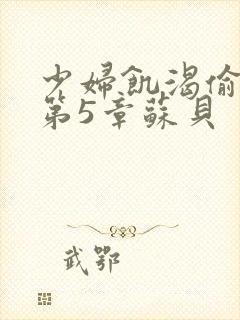 少婦飢渴偷
第5章蘇貝
武鄂